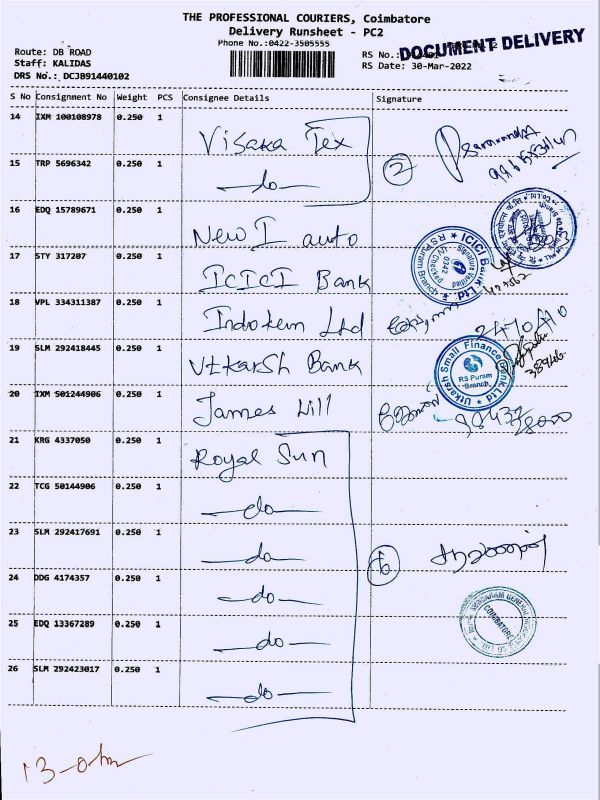 THE PROFESSIONAL COURIERS, Coimbatore
Delivery Runsheet - PC2
Phone No.:0422-3505555
Route: DB ROAD
Staff: KALIDAS
DRS No.: DCJB91440102
RS No.:
DOCUMENT DELIVERY
RS Date: 30-Mar-2022
S No Consignment No Weight PCS Consignee Details Signature
14 IXM 100108978 0.250 1 Visaka Tex
15 TRP 5696342 0.250 1 -do- 2
16 EDQ 15789671 0.250 1 New I auto
17 STY 317207 0.250 1 ICICI Bank
ICICI Bank Ltd.
R S Puram Branch
Signature Verified
18 VPL 334311387 0.250 1 Indokem Ltd
19 SLM 292418445 0.250 1 Utkarsh Bank
Utkarsh Small Finance Bank Ltd
RS Puram
Branch
20 IXM 501244906 0.250 1 James Will
21 KRG 4337050 0.250 1 Royal Sun
22 TCG 50144906 0.250 1 -do-
23 SLM 292417691 0.250 1 -do-
24 DDG 4174357 0.250 1 -do- 6
25 EDQ 13367289 0.250 1 -do-
COIMBATORE
26 SLM 292423017 0.250 1 -do-